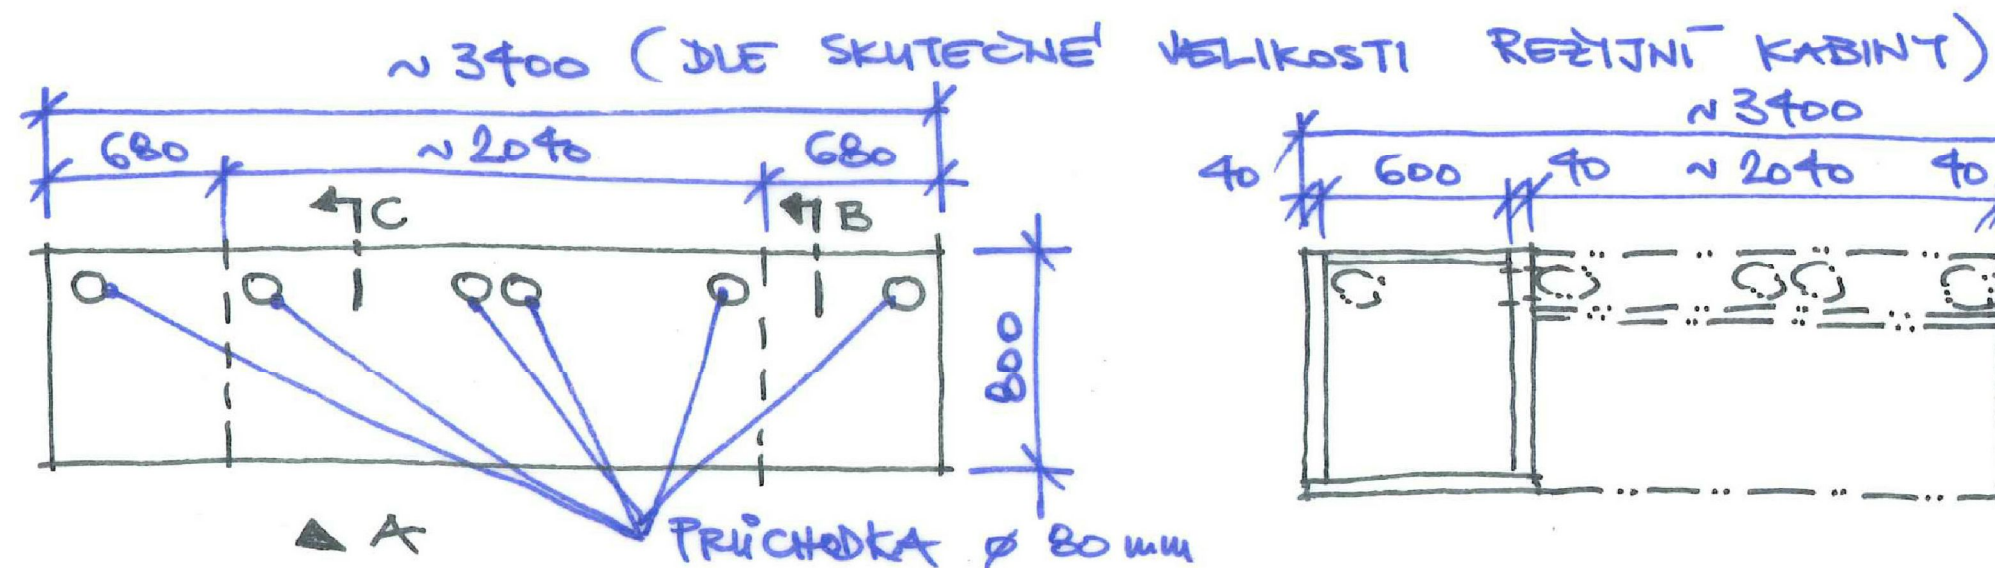 ~ 3400 (DLE SKUTEČNÉ VELIKOSTI REŽIJNÍ KABINY)
680 ~ 2040 680
C B
800
A PRŮCHODKA ø 80 mm
~ 3400
40 600 40 ~ 2040 40